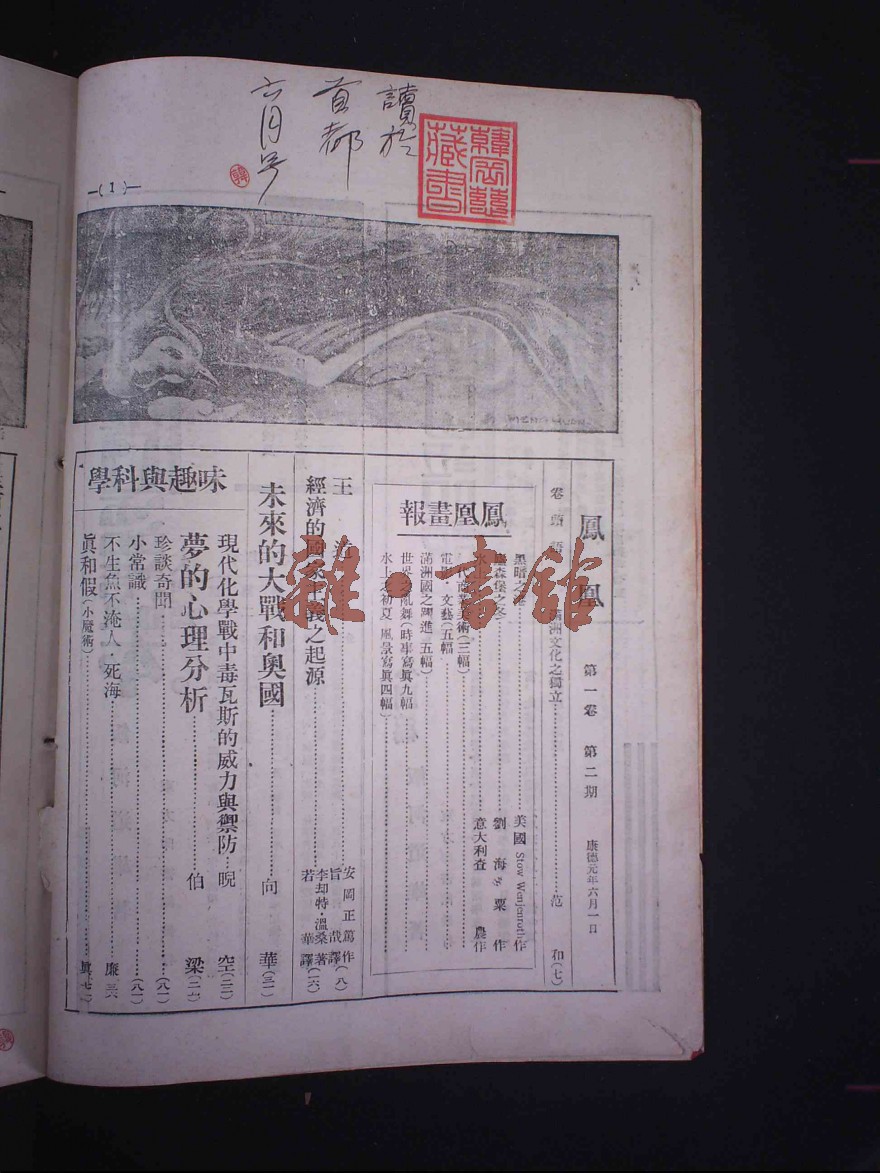 讀於
首都
六月号
藏書
—( 1 )—
鳳凰 第一卷 第二期 康德元年六月一日
卷頭語 滿洲文化之獨立……范 和(七)
鳳凰畫報
黑暗之 美國 Stow 作
森堡之冬 劉海粟作
意大利查 農作
美術(三幅)
電影 文藝(五幅)
滿洲國之躍進 五幅
世界 亂舞(時事寫眞九幅)
水上之初夏 風景寫眞四幅)
王 道……安岡正篤作
旨哉譯(八)
經濟的國家主義之起源……李却特·溫桑著
若 華譯(一六)
未來的大戰和奥國……向 華(三一)
味趣與科學
現代化學戰中毒瓦斯的威力與禦防…晲 空(二二)
夢的心理分析……伯 梁(二六)
珍談奇聞……(八一)
小常識……(八一)
不生魚不淹人·死海……廉 三六
眞和假(小魔術)……眞 七二
雜·書館